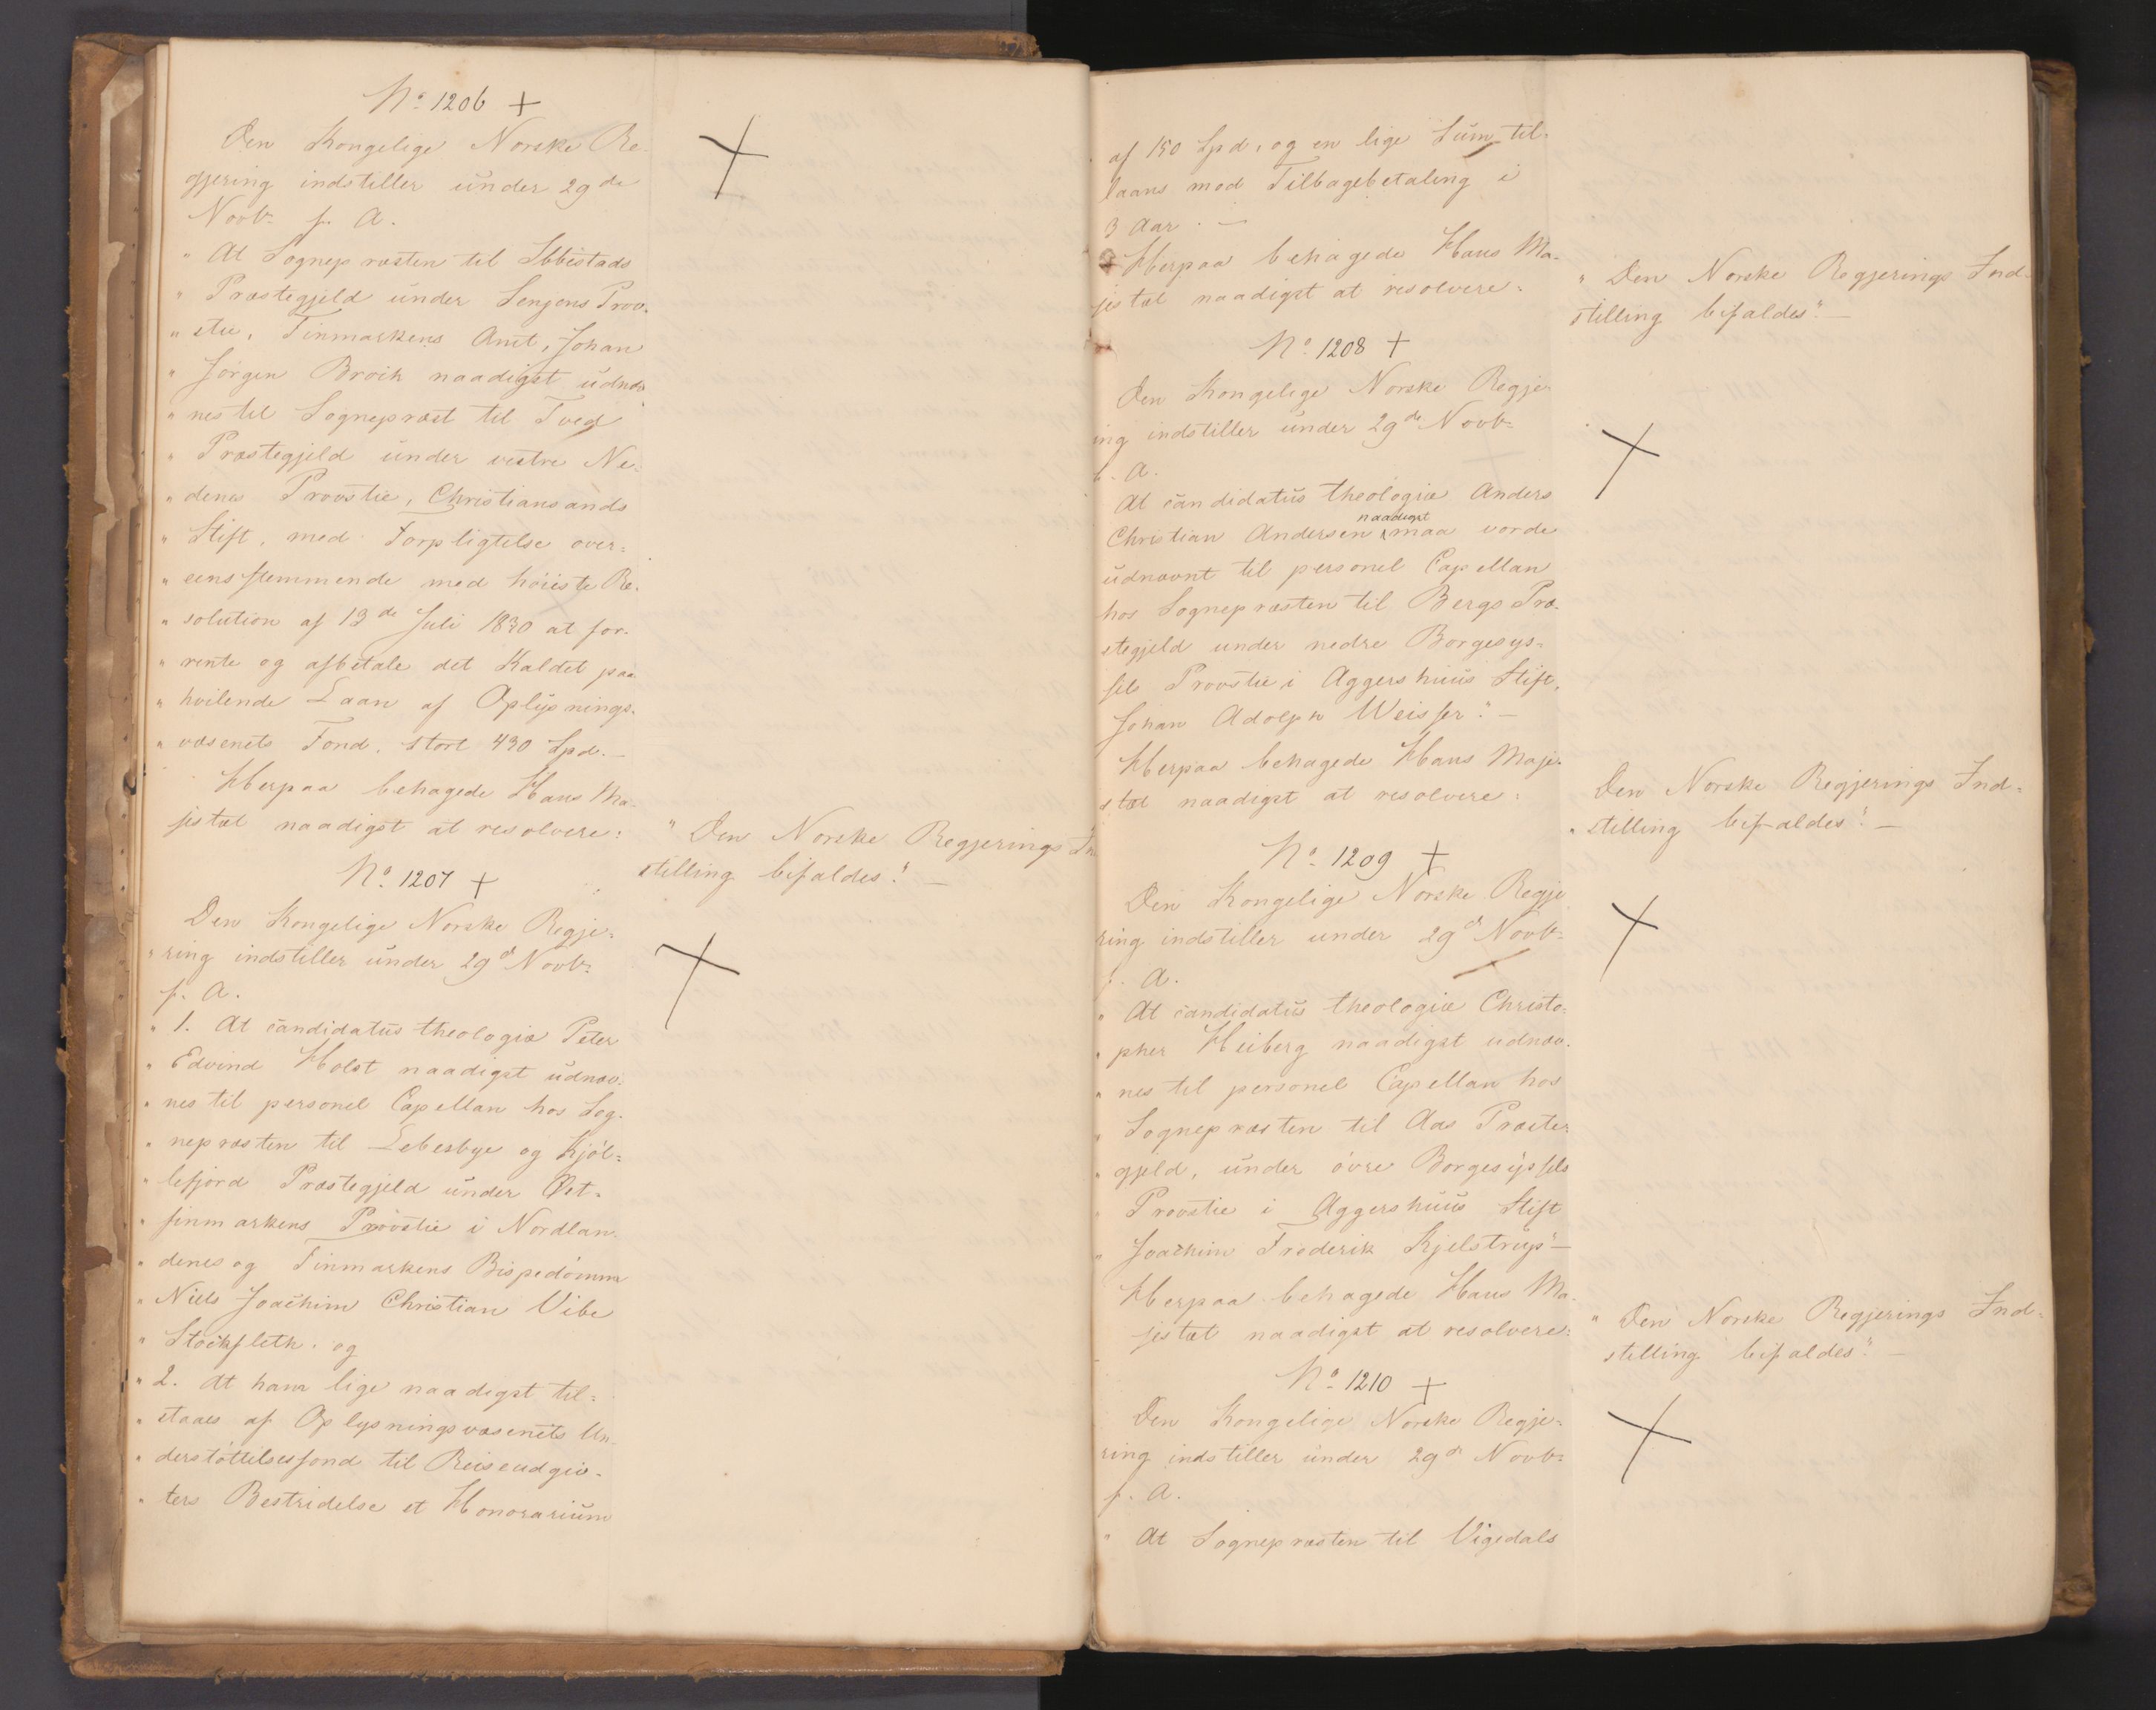 No. 1206 +
Den Kongelige Norske Re-
gjering indstiller under 29de
Novbr f. A.
" At Sognepræsten til Ibbestads
" Præstegjeld under Senjens Prov-
" stie, Finmarkens Amt, Johan
" Jörgen Broch naadigst udnæv-
" nes til Sognepræst til Tved
" Præstegjeld under vestre Ne-
" denes Provstie, Christiansands
" Stift, med Forpligtelse over-
" eensstemmende med höieste Re-
" solution af 13de Juli 1830 at for-
" rente og afbetale det Kaldet paa-
" hvilende Laan af Oplysnings-
" væsenets Fond, stort 430 Spd. -
Herpaa behagede Hans Ma-
jestæt naadigst at resolvere:
" Den Norske Regjerings In
stilling bifaldes". -
No. 1207 +
Den Kongelige Norske Regje-
" ring indstiller under 29d Novbr
f. A.
" 1. At candidatus theologiæ Peter
" Edvind Holst naadigst udnæv-
" nes til personel Capellan hos Sog-
" nepræsten til Lebesbye og Kjöl-
" lefjord Præstegjeld under Øst-
" finmarkens Provstie i Nordlan-
" denes og Finmarkens Bispedömme
" Niels Joachim Christian Vibe
" Stockfleth. og
" 2. At ham lige naadigst til-
" staaes af Oplysningsvæsenets Un-
" derstöttelsesfond til Reiseudgiv-
" ters Bestridelse et Honorarium
af 150 Spd, og en lige Sum til-
laans mod Tilbagebetaling i
3 Aar. -
Herpaa behagede Hans Ma-
jestæt naadigst at resolvere:
" Den Norske Regjerings Ind-
stilling bifaldes". -
No. 1208 +
Den Kongelige Norske Regje-
ing indstiller under 29de Novbr
f. A.
At candidatus theologiæ Anders
naadigst
Christian Andersen maa vorde
udnævnt til personel Capellan
hos Sognepræsten til Bergs Præ-
stegjeld under nedre Borgesys-
sels Provstie i Aggershuus Stift,
Johan Adolph Weisser". -
Herpaa behagede Hans Maje-
stæt naadigst at resolvere:
Den Norske Regjerings Ind-
" stilling bifaldes". -
No. 1209 +
Den Kongelige Norske Regje
ring indstiller under 29d Novbr
f. A.
" At candidatus theologiæ Christo-
" pher Heiberg naadigst udnæv-
" nes til personel Capellan hos
" Sognepræsten til Aas Præste-
" gjeld, under övre Borgesyssels
" Provstie i Aggershuus Stift
" Joachim Frederik Kjelstrup" -
Herpaa behagede Hans Ma-
jestæt naadigst at resolvere:
" Den Norske Regjerings Ind-
stilling bifaldes". -
No. 1210 +
Den Kongelige Norske Regje-
ring indstiller under 29d Novbr
f. A.
" At Sognepræsten til Vigedals